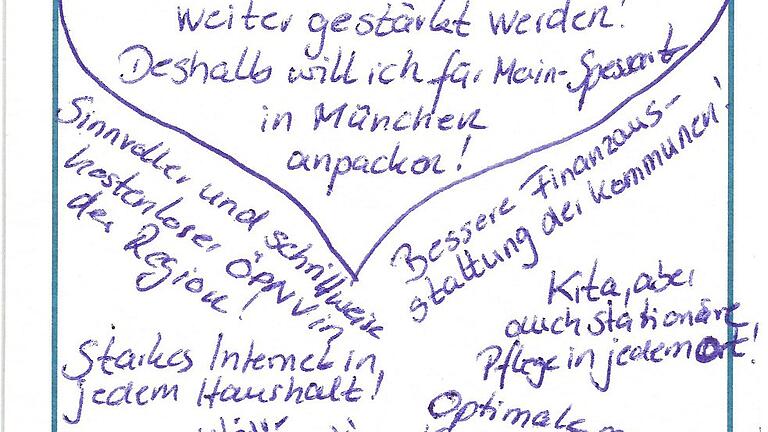 weiter gestärkt werden!
Deshalb will ich für Main-Spessart
in München
anpacken!
Sinnvoller und schrittweise
kostenloser ÖPNV in
der Region!
Bessere Finanzaus-
stattung der Kommunen!
Kita, aber
auch stationäre
Pflege in jedem Ort!
Starkes Internet in
jedem Haushalt!
Optimale